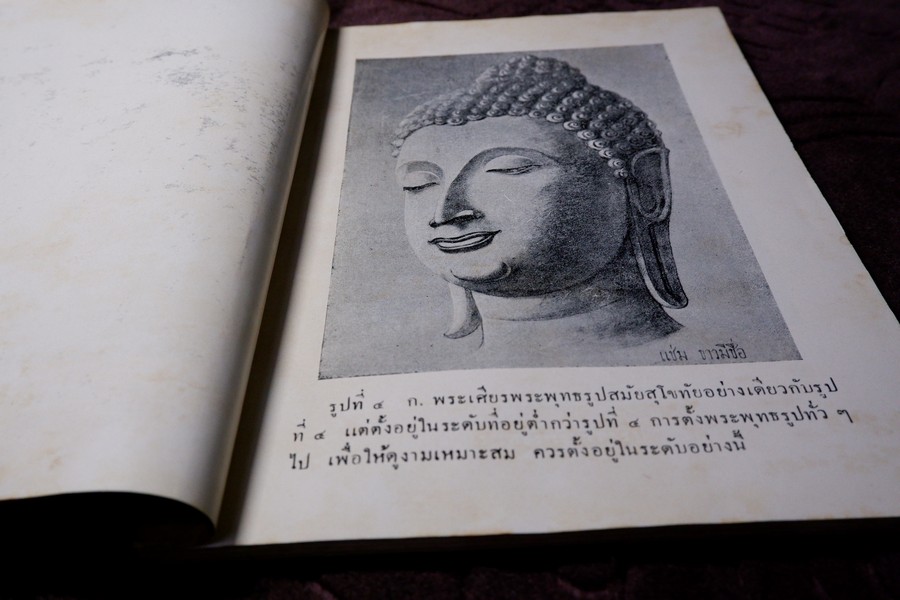 แช่ม ขาวมีชื่อ
รูปที่ ๔ ก. พระเศียรพระพุทธรูปสมัยสุโขทัยอย่างเดียวกับรูป
ที่ ๔ แต่ตั้งอยู่ในระดับที่อยู่ต่ำกว่ารูปที่ ๔ การตั้งพระพุทธรูปทั่ว ๆ
ไป เพื่อให้ดูงามเหมาะสม ควรตั้งอยู่ในระดับอย่างนี้